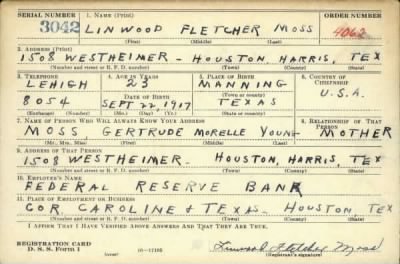 SERIAL NUMBER 1. NAME (Print) ORDER NUMBER
3042 LINWOOD FLETCHER MOSS 4062
(First) (Middle) (Last)
2. ADDRESS (Print)
1508 WESTHEIMER - HOUSTON, HARRIS, TEX
(Number and street or R. F. D. number) (Town) (County) (State)
3. TELEPHONE 4. AGE IN YEARS 5. PLACE OF BIRTH 6. COUNTRY OF CITIZENSHIP
LEHIGH 23 MANNING
DATE OF BIRTH (Town or county) U.S.A.
8054 SEPT 22, 1917 TEXAS
(Exchange) (Number) (Mo.) (Day) (Yr.) (State or country)
7. NAME OF PERSON WHO WILL ALWAYS KNOW YOUR ADDRESS 8. RELATIONSHIP OF THAT PERSON
MOSS GERTRUDE MORELLE YOUNG MOTHER
(Mr., Mrs., Miss) (First) (Middle) (Last)
9. ADDRESS OF THAT PERSON
1508 WESTHEIMER - HOUSTON, HARRIS, TEX
(Number and street or R. F. D. number) (Town) (County) (State)
10. EMPLOYER'S NAME
FEDERAL RESERVE BANK
11. PLACE OF EMPLOYMENT OR BUSINESS
COR CAROLINE + TEXAS - HOUSTON TEX
(Number and street or R. F. D. number) (Town) (County) (State)
I AFFIRM THAT I HAVE VERIFIED ABOVE ANSWERS AND THAT THEY ARE TRUE.
REGISTRATION CARD
D. S. S. Form 1 (over) 16-17105 Linwood Fletcher Moss
(Registrant's signature)